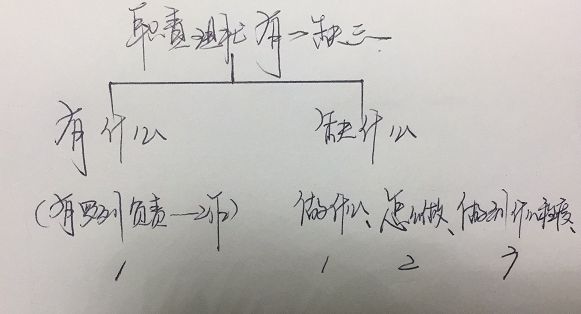 职责退化有一缺三
有什么 缺什么
(有罗列负责一项) 做什么、怎么做、做到什么程度、
1 1 2 3